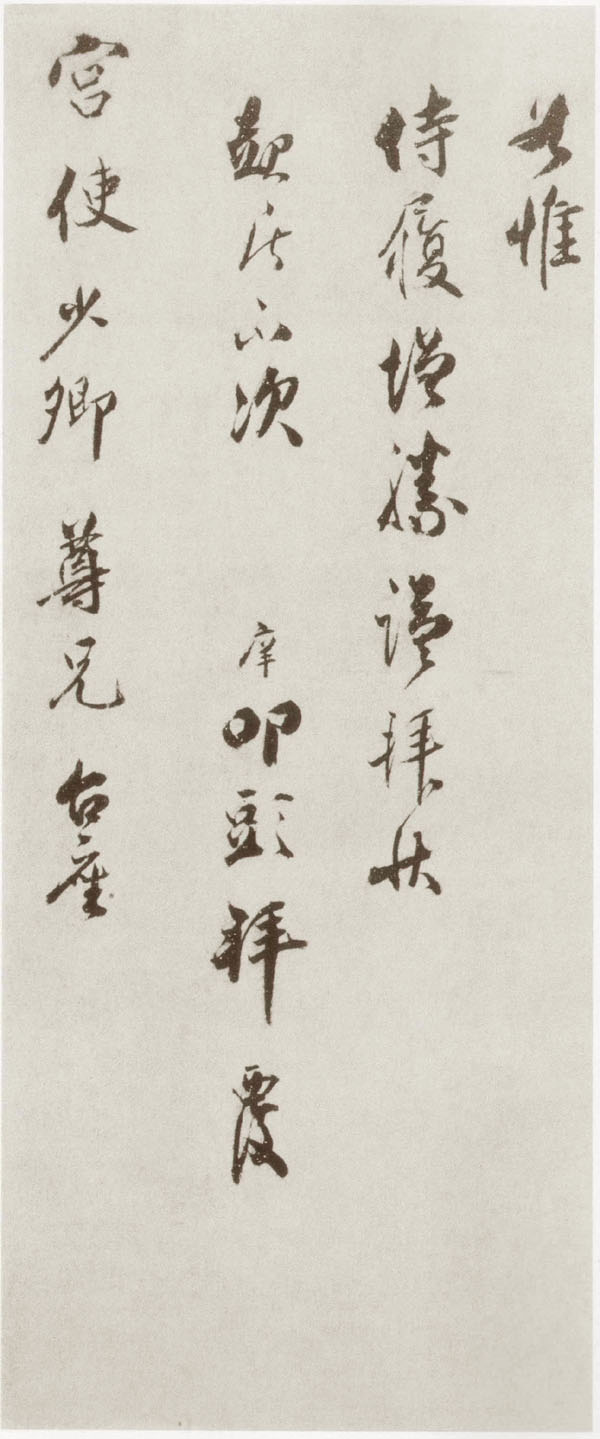 共惟
侍履增勝謹拜狀
起居不次 庠叩頭拜覆
宮使少卿 尊兄 台座